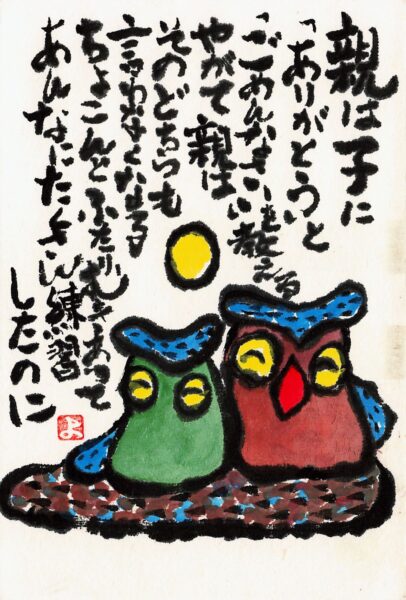 親は子に
「ありがとう」と
「ごめんなさい」を教える
やがて親は
そのどちらも
言わなくなる
ちょこんとふたりむきあって
あんなにたくさん練習
したのに
よ